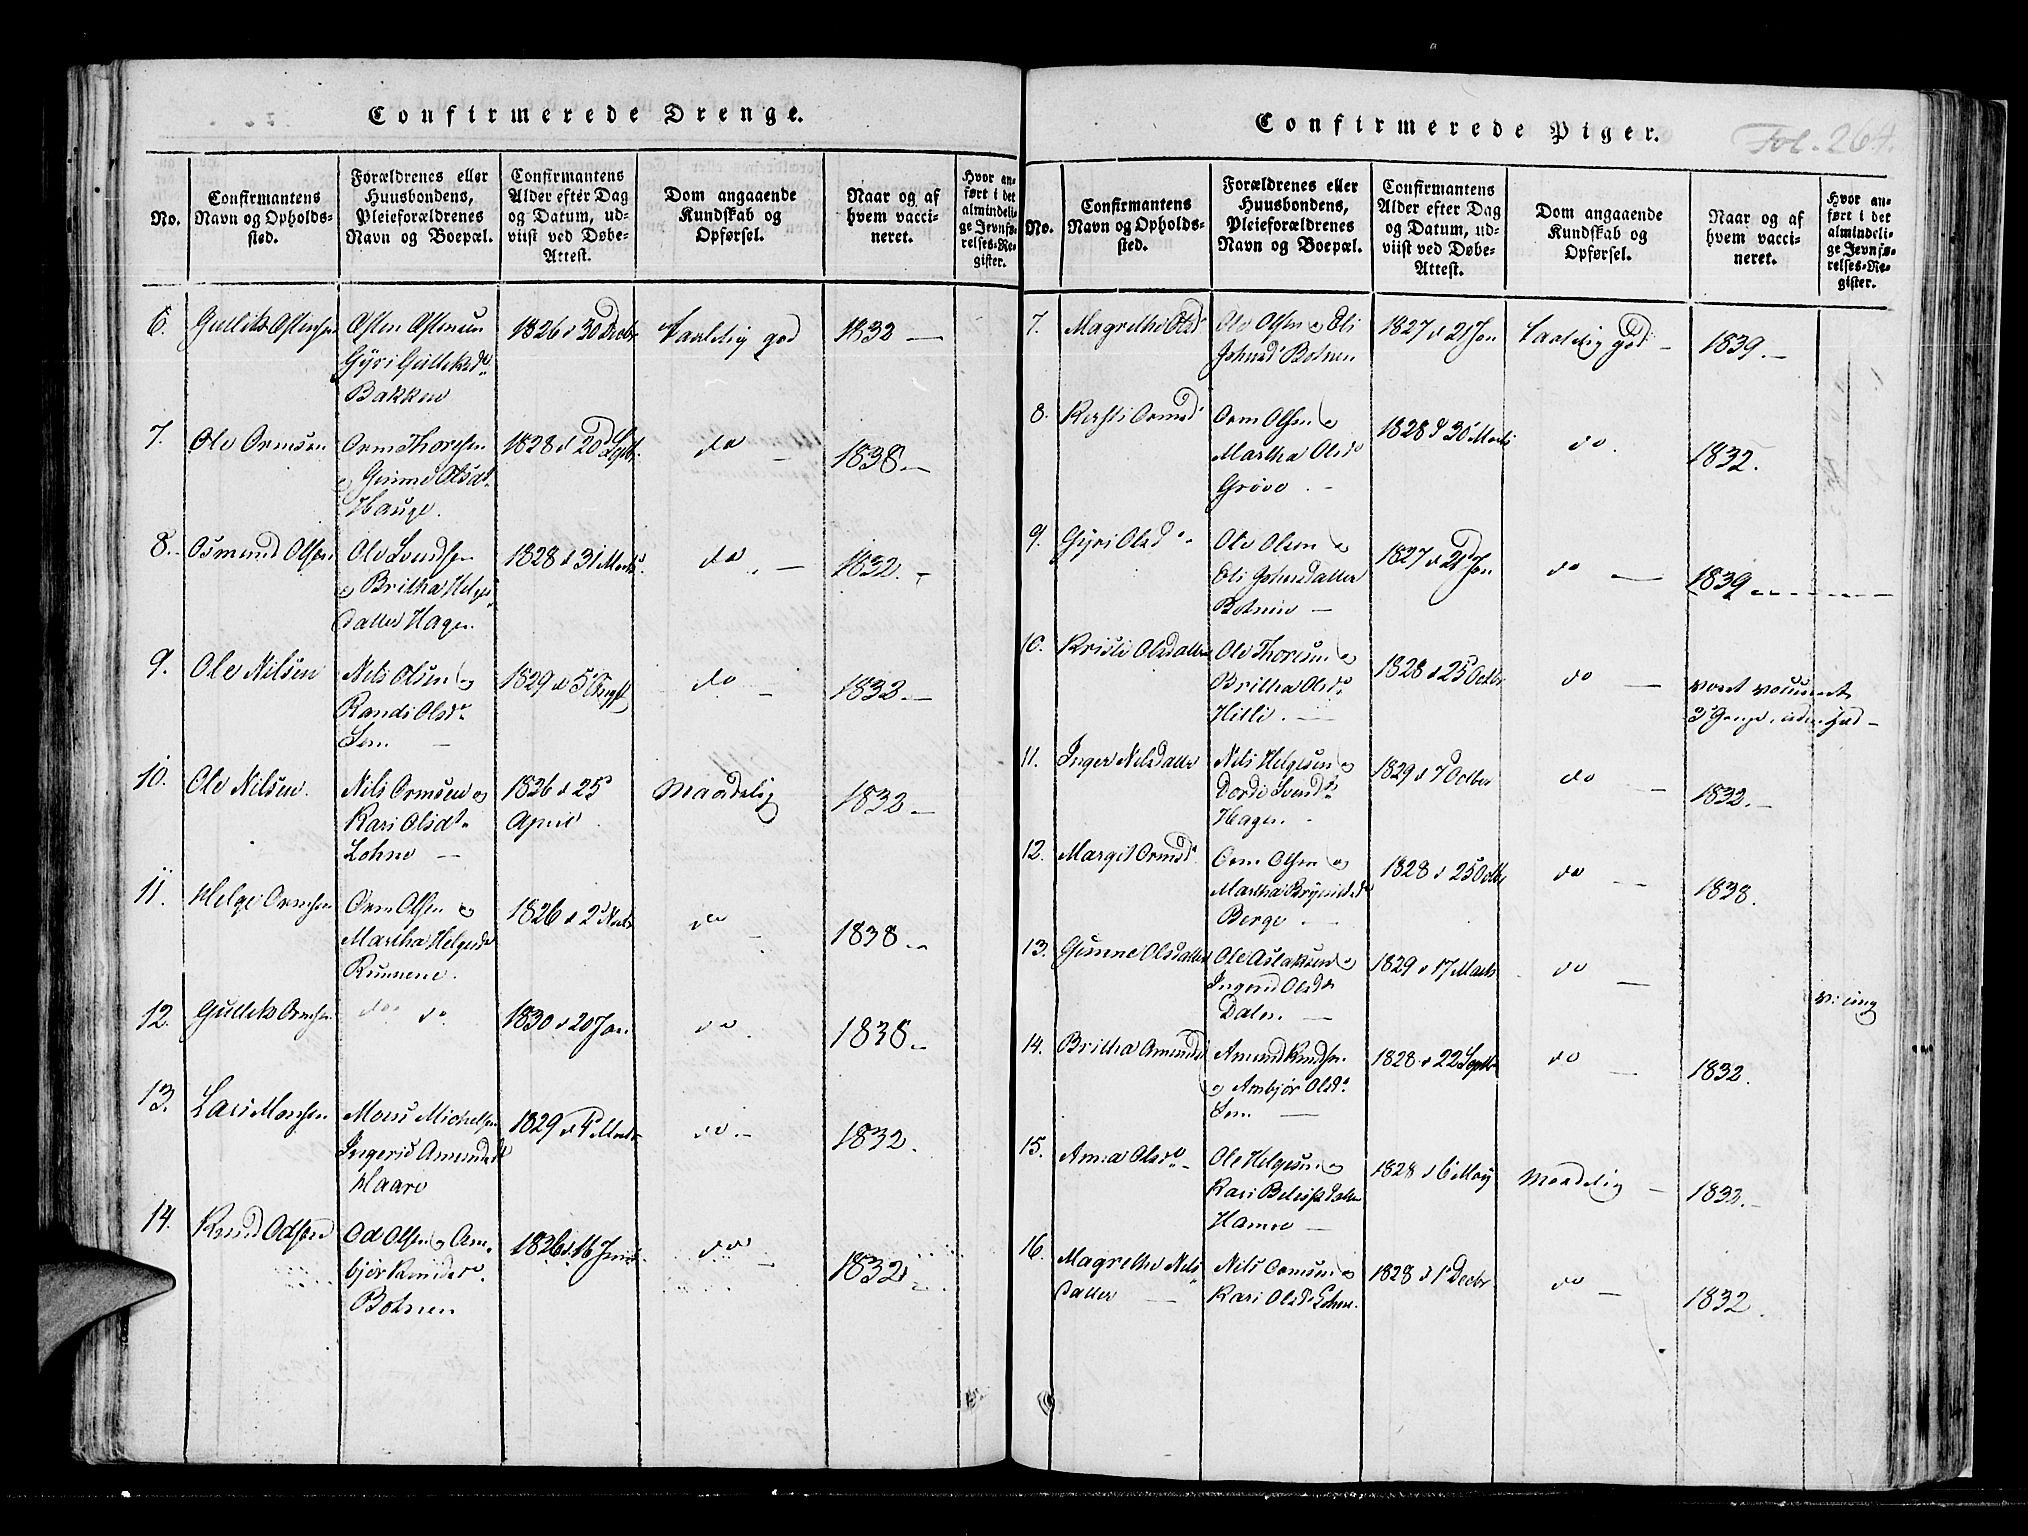 Confirmerede Drenge.
No.
Confirmantens
Navn og Opholds-
sted.
Forældrenes eller
Huusbondens,
Pleieforældrenes
Navn og Boepæl.
Confirmantens
Alder efter Dag
og Datum, ud-
viist ved Døbe-
Attest.
Dom angaaende
Kundskab og
Opførsel.
Naar og af
hvem vacci-
neret.
Hvor an-
ført i det
almindeli-
ge Jevnfø-
relses-Re-
gister.
6. Gulleik Østensen
Østen Østensen
Gyri Gulleiksd.
Bakken
1826 d 30 Decbr
Taalelig god
1832 —
7. Ole Ormsen
Orm Thorsen
Gunne Olsd.
Hauge.
1828 d 20 Septbr
do
1838. —
8. Osmund Olsen
Ole Svendsen
Britha Helges
datter Hagen.
1828 d 31 Marts
do —
1832. —
9. Ole Nilsen
Nils Olsen og
Randi Olsd.
Sem —
1829 d 5
do —
1832 —
10. Ole Nilsen.
Nils Ormsen og
Kari Olsd.
Lohne —
1826 d 25
April
Maadelig
1832 —
11. Helge Ormsen
Orm Olsen og
Martha Helgesd
Runnene.
1826 d 2
do —
1838 —
12. Gulleik Ormsen
do. do.
1830 d 20 Jan
do.
1838. —
13. Lars Monsen
Mons Michelsen
Ingerid Amundsd
Haare
1829 d 4 Marts
do. —
1832.
14. Knud Odsen
Od Olsen og Am-
bjør Knudsd.
Botnen
1826 d. 16 Juni
do —
1832
Confirmerede Piger.
Fol. 264.
No.
Confirmantens
Navn og Opholds-
sted.
Forældrenes eller
Huusbondens,
Pleieforældrenes
Navn og Boepæl.
Confirmantens
Alder efter Dag
og Datum, ud-
viist ved Døbe-
Attest.
Dom angaaende
Kundskab og
Opførsel.
Naar og af
hvem vacci-
neret.
Hvor an-
ført i det
almindeli-
ge Jevnfø-
relses-Re-
gister.
7. Magrethe Olsd
Ole Olsen og Eli
Johnsd Botnen
1827 d 21 Jan
Taalelig god —
1839. —
8. Kirsti Ormsd
Orm Olsen og
Martha Olsd
Grøve. —
1828 d 30 Marts
do.
1832.
9. Gyri Olsd.
Ole Olsen og
Eli Johnsdatter
Botnen —
1827 d 21 Jan
do —
1839
10. Kristi Olsdatter
Ole Thoresen og
Britha Olsd.
Hilli. —
1828 d 25 Octbr
do —
været vaccineret
3 Gange, uden
11. Inger Nilsdatter
Nils Helgesen og
Dordi Svendsd.
Hagen.
1829 d 7 Octber
do —
1832. —
12. Margit Ormsd
Orm Olsen og
Martha Bryniulsd
Berge. —
1828 d 25 Octbr
do —
1838.
13. Gunne Olsdatter
Ole Aslaksen og
Ingerid Olsd
Dalen. —
1829 d 17 Marts
do —
14. Britha Amundsd
Amund Knudsen
og Ambjør Olsd.
Sem —
1828 d 22 Septbr
do —
1832.
15. Anna Olsd. —
Ole Helgesen og
Kari datter
Hamre —
1828 d 6 May
Maadelig —
1832. —
16. Magrethe Nils
datter —
Nils Ormsen og
Kari Olsd. Lohne.
1828 d 1 Decbr
do —
1832.